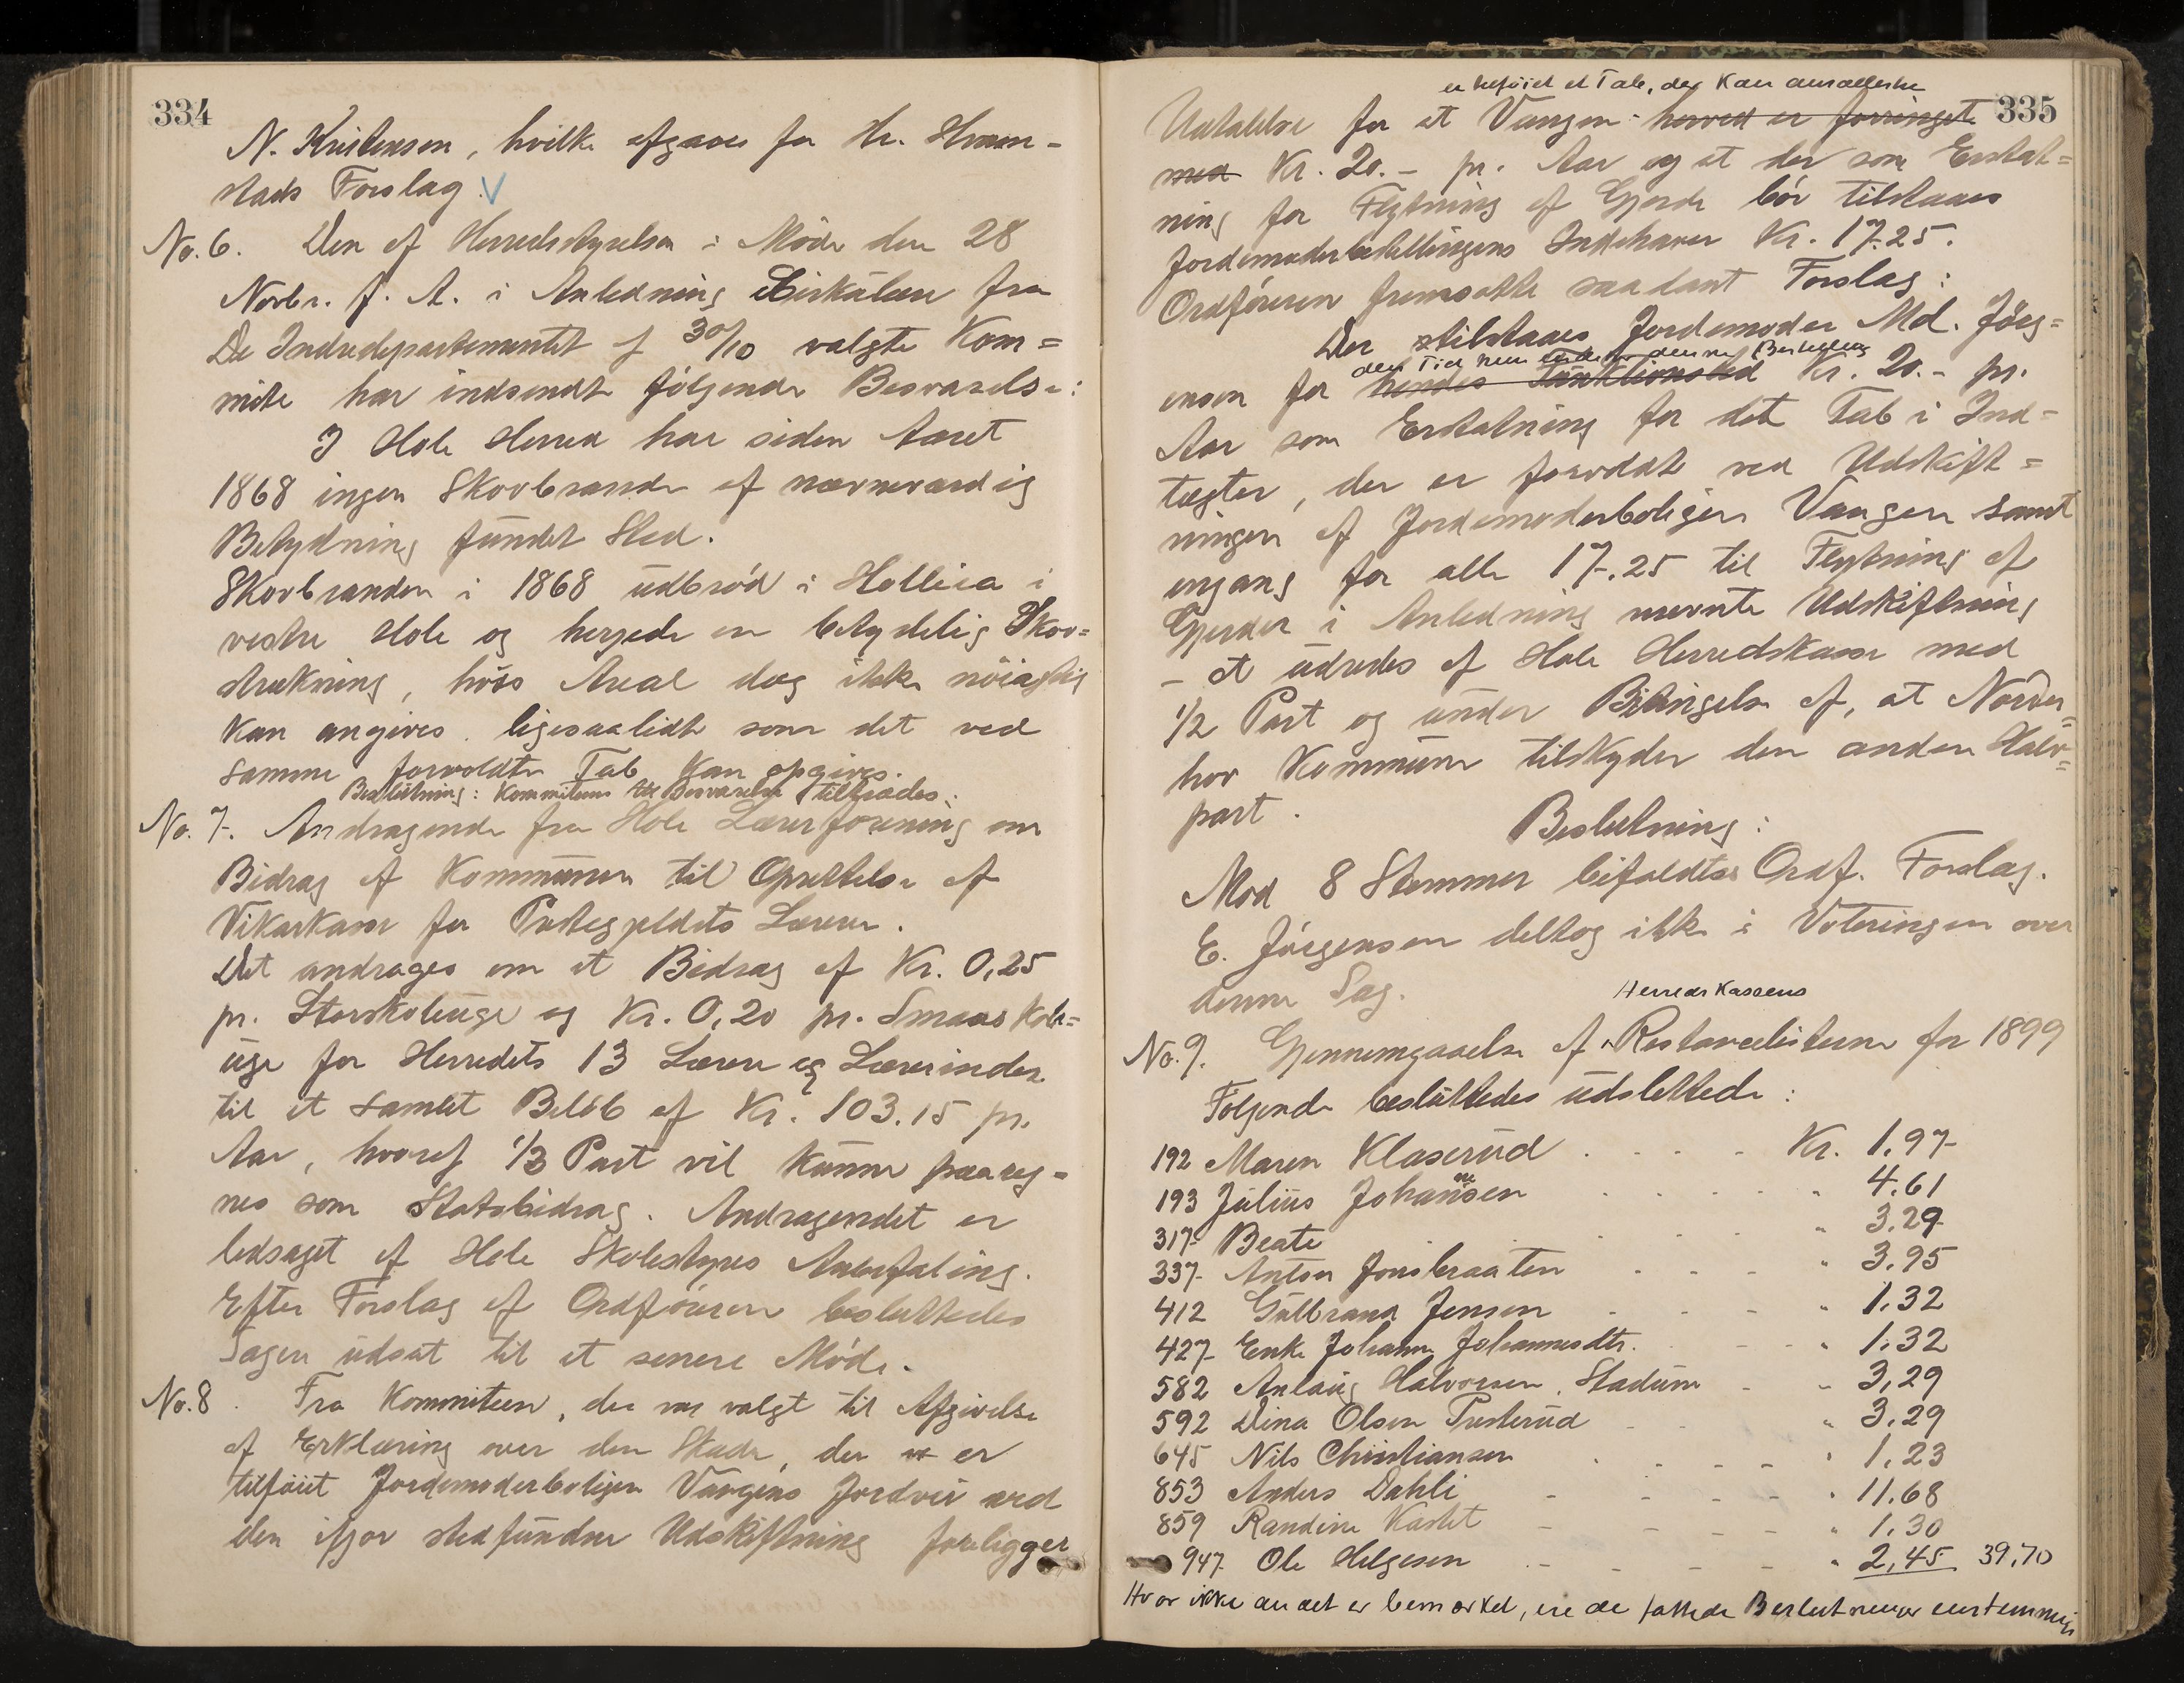 334
N. Kristensen, hvilke afgaves for Hr. Hvam-
stads Forslag. V
No. 6. Den af Herredsstyrelsen i Møde den 28
Novbr. f. A. i Anledning Cirkulære fra
De Indredepartementet af 30/10 valgte Kom=
mite har indsendt følgende Besvarelse:
I Hole Herred har siden Aaret
1868 ingen Skovbrande af nævneværdig
Betydning fundet Sted.
Skovbranden i 1868 udbrød i Hollia i
vestre Hole og hærjede en betydelig Skov=
strækning, hvis Areal dog ikke nöiagtig
kan angives, ligesaalidt som det ved
samme forvoldte Tab kan opgives.
Beslutning: Kommiteens Besvarelse tiltrædes.
No. 7. Andragende fra Hole Lærerforening om
Bidrag af Kommunen til Oprettelse af
Vikarkasse for Præstegjeldets Lærere.
Det andrages om et Bidrag af Kr. 0,25
pr. Storskoleuge og Kr. 0,20 pr. Smaaskole=
uge for Herredets 13 Lærere og Lærerinder
til et samlet Beløb af Kr. 103.15 pr.
Aar, hvoraf 1/3 Part vil kunne paareg-
nes som Statsbidrag. Andragendet er
ledsaget af Hole Skolestyres Anbefaling.
Efter Forslag af Ordføreren besluttedes
Sagen udsat til et senere Møde.
No. 8. Fra Kommiteen, der var valgt til Afgivelse
af Erklæring over den Skade, der er
tilföiet Jordemoderboligen Vangens Jordvei ved
den ifjor stedfundne Udskiftning foreligger
335
er tilföiet et Tab, der kan ansættes til
Udtalelse for at Vangen herved er forringet
med Kr. 20.- pr. Aar og at der som Erstat=
ning for Flytning af Gjerde bör tilstaaes
Jordemoderbestillingens Indehaver Kr. 17.25.
Ordföreren fremsatte saadant Forslag:
Der tilstaaes Jordemoder Md. Jörg=
den Tid hun denne Bestilling
ensen for hendes Funktionstid Kr. 20.- pr.
Aar som Erstatning for det Tab i Ind=
tægter, der er forvoldt ved Udskift=
ningen af Jordemoderboligen Vangen samt
engang for alle 17.25 til Flytning af
Gjerder i Anledning nævnte Udskiftning
- at udredes af Hole Herredskasse med
1/2 Part og under Betingelse af, at Norder=
hov Kommune tilskyder den anden Halv=
part.
Beslutning:
Mod 8 Stemmer bifaldtes Ordf. Forslag.
E. Jörgensen deltog ikke i Voteringen over
denne Sag.
Herredskassens
No. 9. Gjennemgaaelse af Restancelisterne for 1899
Følgende besluttedes udslettede:
192 Maren Klaserud . . . . Kr. 1.97
193 Julius Johannesen . . . . " 4.61
317 Beate . . . . " 3.29
337 Anton Jonsbraaten . . . " 3.95
412 Gulbrand Jensen . . . " 1.32
427 Enke Johanne Johannesdtr. . . " 1.32
582 Anlaug Halvorsen, Stadum - " 3,29
592 Dina Olsen Præsterud - - " 3.29
645 Nils Christiansen . . . . " 1,23
853 Anders Dahli - - - - " 11.68
859 Randine Kastet - - - - " 1.30
947 Ole Helgesen . . . . " 2,45 39,70
Hvor ikke andet er bemærket, ere de fattede Beslutninger eenstemmige